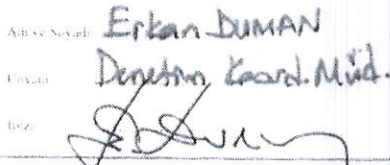 Adı ve Soyadı: Erkan DUMAN
Unvanı: Denetim Koord. Müd.
İmza: